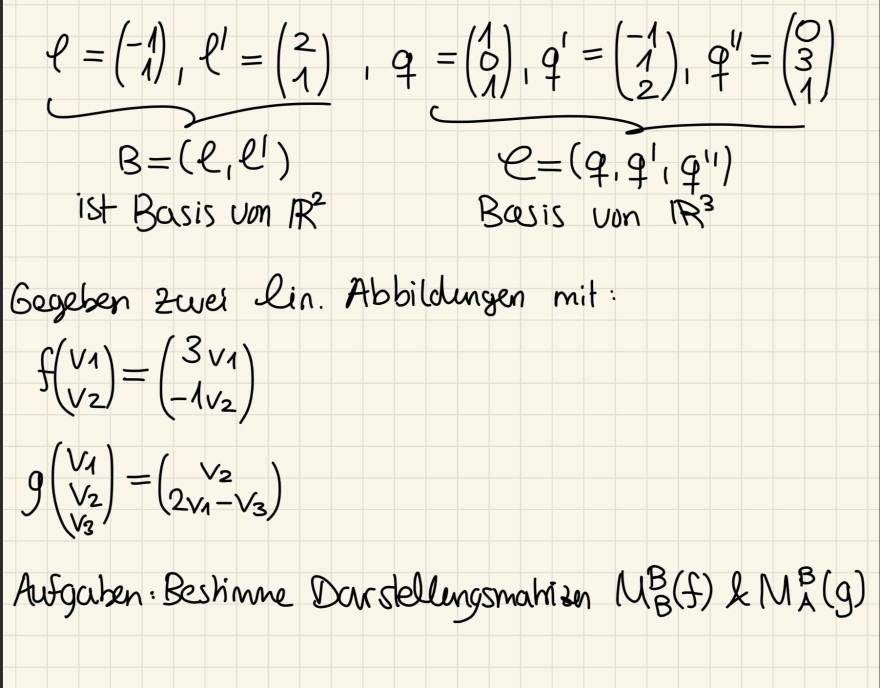 ℓ = (-1 1), ℓ' = (2 1), q = (1 0 1), q' = (-1 1 2), q'' = (0 3 1)
B = (ℓ, ℓ') C = (q, q', q'')
ist Basis von ℝ² Basis von ℝ³
Gegeben zwei lin. Abbildungen mit:
f(v1 v2) = (3v1 -1v2)
g(v1 v2 v3) = (v2 2v1-v3)
Aufgaben: Bestimme Darstellungsmatrizen M^B_B(f) & M^B_A(g)